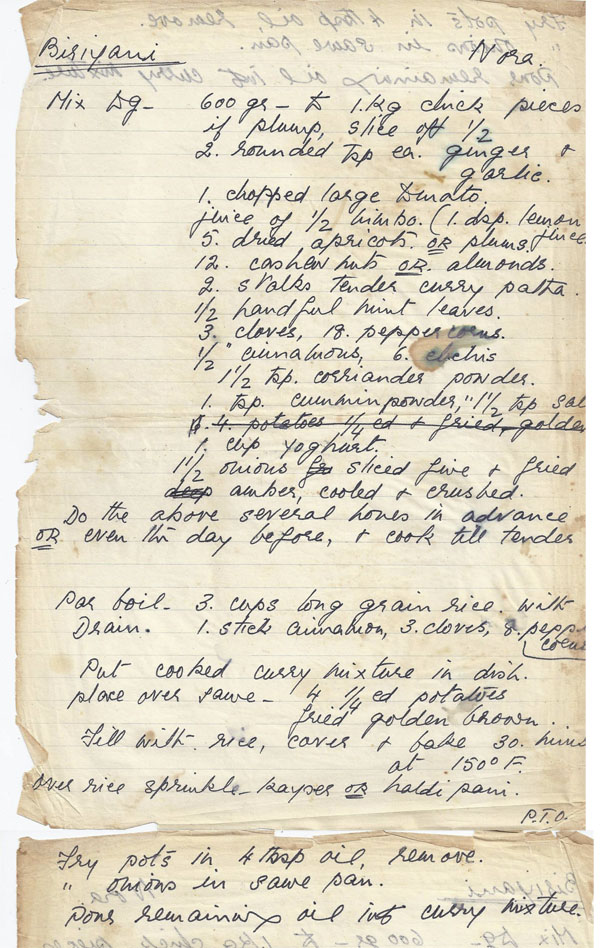 Biriyani Nora.
Mix Dg - 600 grs - to 1.kg chick pieces
if plump, slice off 1/2
2. rounded tsp ea. ginger &
garlic.
1. chopped large tomato.
juice of 1/2 nimbo. (1. dsp. lemon
juice
5. dried apricots. OR plums.
12. cashew nuts OR. almonds.
2. stalks tender curry patha.
1/2 handful mint leaves.
3. cloves, 18. peppercorns.
1/2" cinnamons, 6. elichis
1 1/2 tsp. corriander powder.
1. tsp. cummin powder, " 1 1/2 tsp sal
4. potatoes 1/4 cd & fried, golden
1. cup yoghurt.
1 1/2 onions sliced fine & fried
deep amber, cooled & crushed.
Do the above several hours in advance
OR even the day before, & cook till tender
Par boil - 3. cups long grain rice. with
Drain. 1. stick cinnamon, 3. cloves, 8. pepp
corns
Put cooked curry mixture in dish.
place over same - 4 1/4 cd potatoes
fried golden brown.
Fill with rice, cover & bake 30. mins
at 150° F.
over rice sprinkle - kayser OR haldi pani.
P.T.O.
Fry pots in 4 tbsp oil, remove.
" onions in same pan.
Pour remaining oil into curry mixture.